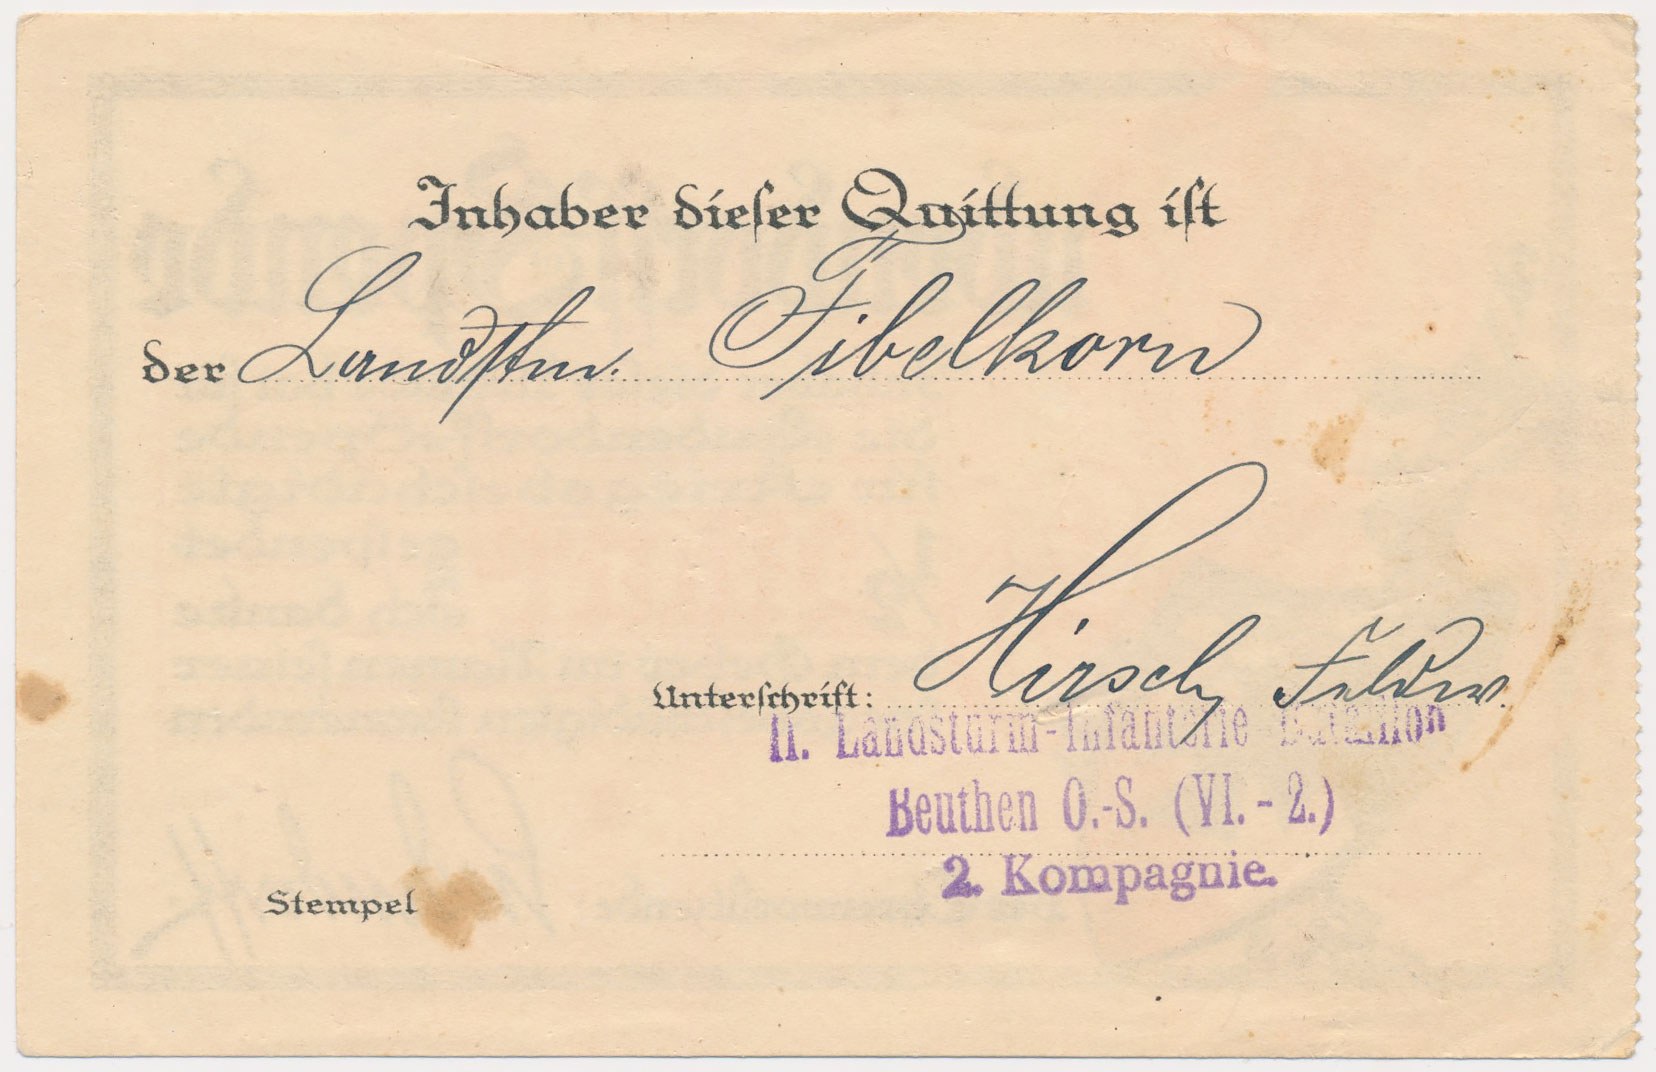 Inhaber dieser Quittung ist
der Landstm. Fibelkorn
Unterschrift: Hirsch Feldw.
II. Landsturm-Infanterie-Bataillon
Beuthen O.-S. (VI.-2.)
2. Kompagnie.
Stempel